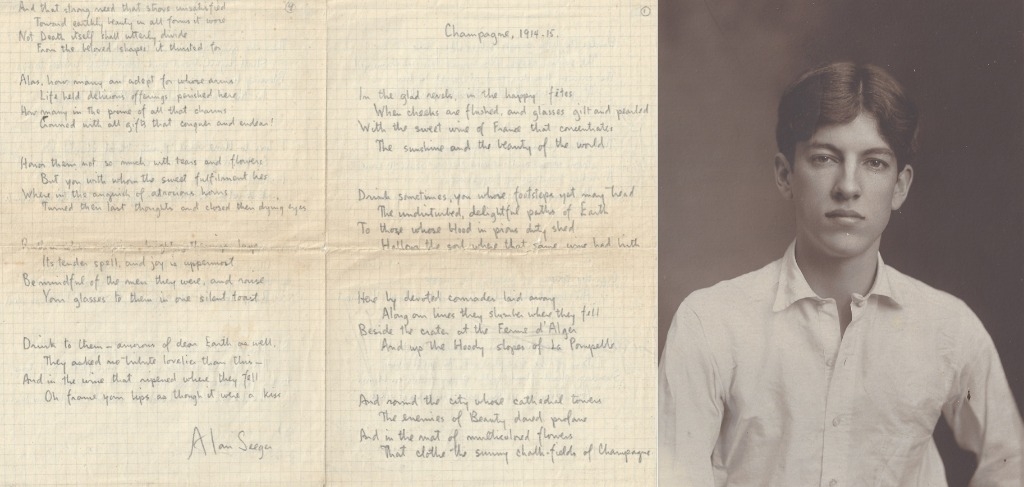 4
And that strong need that strove unsatisfied
Toward earthly beauty in all forms it wore
Not Death itself shall utterly divide
From the beloved shapes it thirsted for
Alas, how many an adept for whose arms
Life held delicious offerings perished here
How many in the prime of all that charms
Crowned with all gifts that conquer and endear!
Honor them not so much with tears and flowers
But you with whom the sweet fulfilment lies
Where in the anguish of atrocious hours
Turned their last thoughts and closed their dying eyes
Its tender spell, and joy is uppermost
Be mindful of the men they were, and raise
Your glasses to them in one silent toast
Drink to them – amorous of dear Earth as well,
They asked no tribute lovelier than this –
And in the wine that ripened where they fell
Oh frame your lips as though it were a kiss
Alan Seeger
1
Champagne, 1914-15.
In the glad revels, in the happy fêtes
When cheeks are flushed, and glasses gilt and pearled
With the sweet wine of France that concentrates
The sunshine and the beauty of the world
Drink sometimes, you whose footsteps yet may tread
The undisturbed, delightful paths of Earth
To those whose blood in pious duty shed
Hallows the soil where that same wine had birth
Here by devoted comrades laid away
Along our lines they slumber where they fell
Beside the crater at the Ferme d'Alger
And up the bloody slopes of La Pompelle
And round the city whose cathedral towers
The enemies of Beauty dared profane
And in the mat of multicolored flowers
That clothe the sunny chalk-fields of Champagne